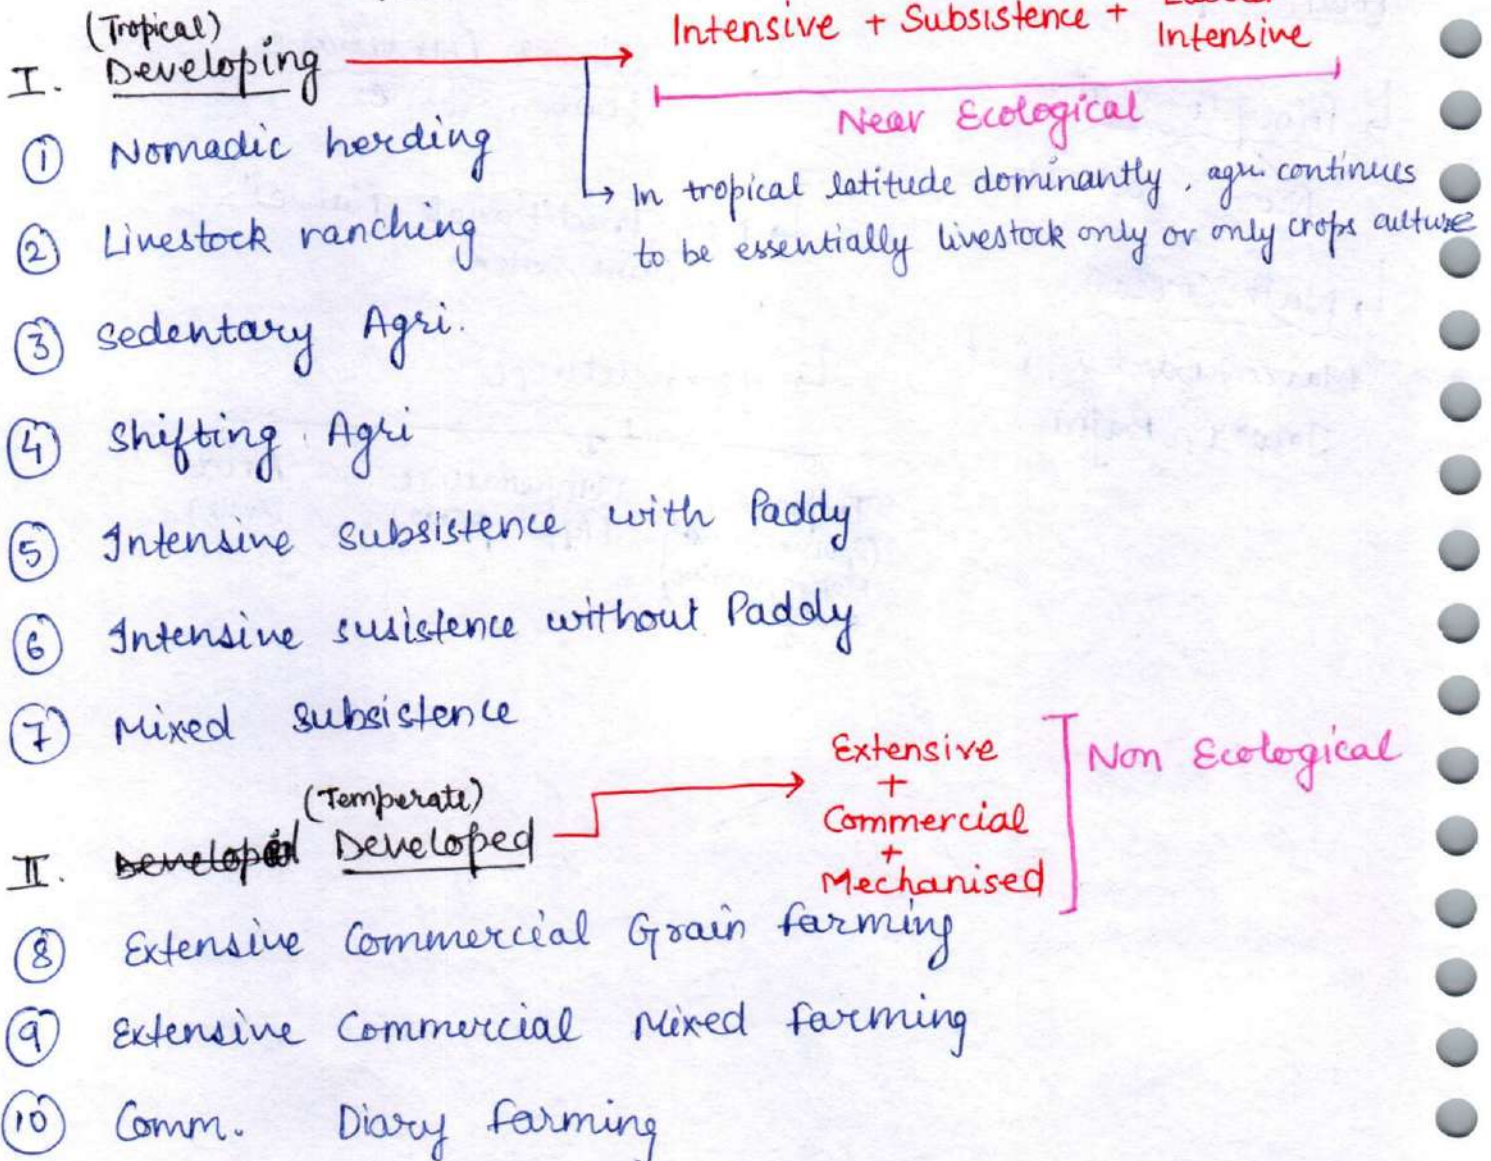 (Tropical)
I. Developing
Intensive + Subsistence +
Intensive
Near Ecological
① Nomadic herding
↳ In tropical latitude dominantly, agri. continues
to be essentially livestock only or only crops culture
② Livestock ranching
③ Sedentary Agri.
④ Shifting Agri
⑤ Intensive subsistence with Paddy
⑥ Intensive susistence without Paddy
⑦ Mixed subsistence
(Temperate)
II. Developed
Extensive
+
Commercial
+
Mechanised
Non Ecological
⑧ Extensive Commercial Grain farming
⑨ Extensive Commercial Mixed farming
⑩ Comm. Diary farming